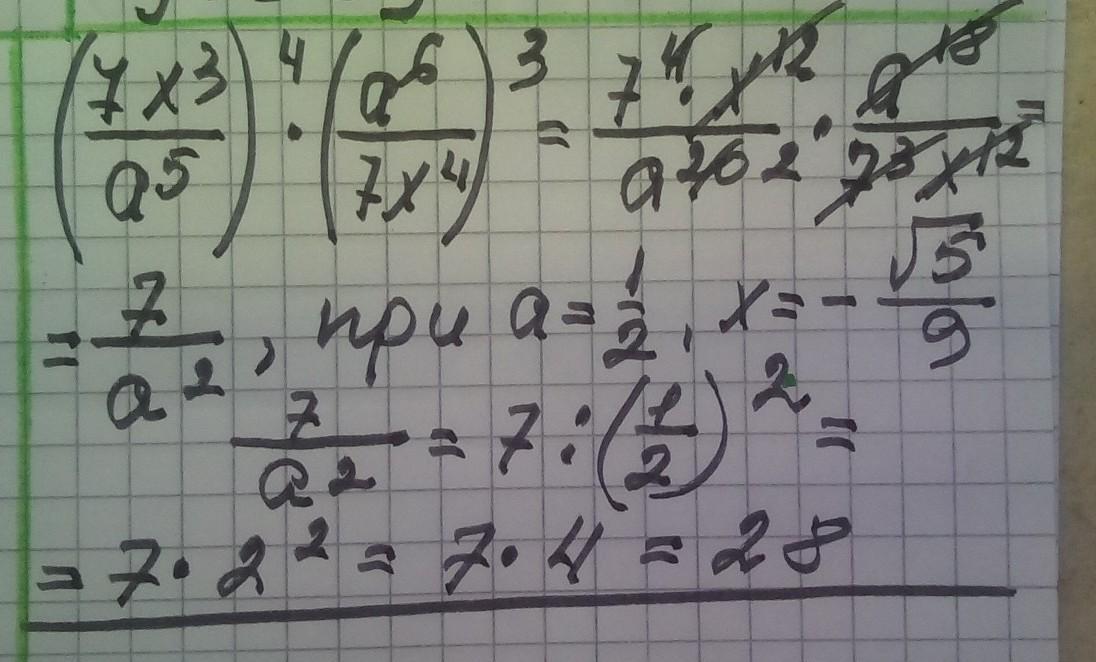 (7x³/a⁵)⁴ · (a⁶/7x⁴)³ = 7⁴·x¹²/a²⁰ ² · a¹⁸/7³x¹² =
= 7/a², при a = 1/2, x = - √5/9
7/a² = 7 : (1/2)² =
= 7 · 2² = 7 · 4 = 28